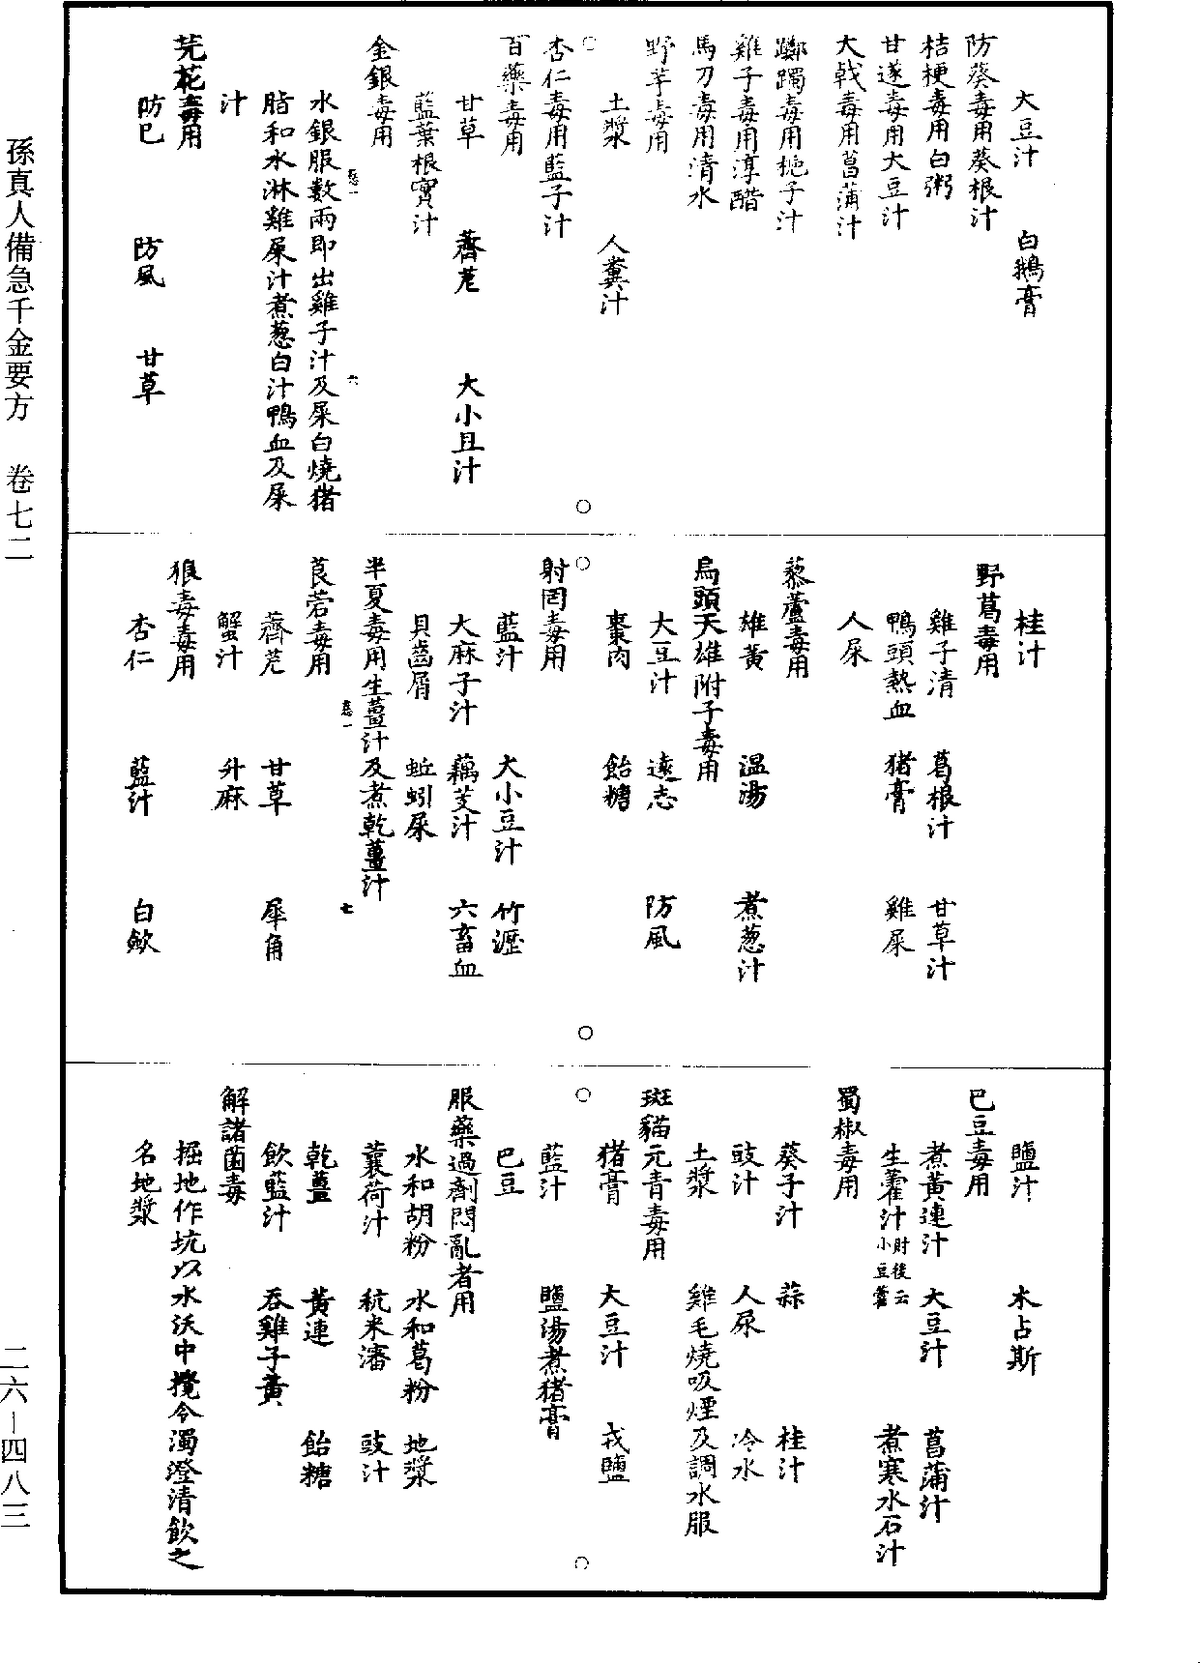 大豆汁　白鵝膏
防葵毒用葵根汁
桔梗毒用白粥
甘遂毒用大豆汁
大戟毒用菖蒲汁
躑躅毒用梔子汁
雞子毒用淳醋
馬刀毒用清水
野芋毒用
土漿　人糞汁
杏仁毒用藍子汁
百藥毒用
甘草　薺苨　大小豆汁
藍葉根實汁
金銀毒用
水銀服數兩即出雞子汁及屎白燒猪
脂和水淋雞屎汁煮葱白汁鴨血及屎
汁
芫花毒用
防已　防風　甘草
桂汁
野葛毒用
雞子清　葛根汁　甘草汁
鴨頭熱血　猪膏　雞屎
人屎
藜蘆毒用
雄黃　温湯　煮葱汁
烏頭天雄附子毒用
大豆汁　遠志　防風
棗肉　飴糖
射罔毒用
藍汁　大小豆汁　竹瀝
大麻子汁　藕芰汁　六畜血
貝齒屑　蚯蚓屎
半夏毒用生薑汁及煮乾薑汁
莨菪毒用
薺苨　甘草　犀角
蟹汁　升麻
狼毒毒用
杏仁　藍汁　白歛
鹽汁　木占斯
巴豆毒用
煮黃連汁　大豆汁　菖蒲汁
生藿汁肘後云小豆藿　煮寒水石汁
蜀椒毒用
葵子汁　蒜　桂汁
豉汁　人尿　冷水
土漿　雞毛燒吸煙及調水服
斑貓元青毒用
猪膏　大豆汁　戎鹽
藍汁　鹽湯煮猪膏
巴豆
服藥過劑悶亂者用
水和胡粉　水和葛粉　地漿
蘘荷汁　秔米瀋　豉汁
乾薑　黃連　飴糖
飲藍汁　吞雞子黃
解諸菌毒
掘地作坑以水沃中攪令濁澄清飲之
名地漿
孫真人備急千金要方　卷七二
二六—四八三